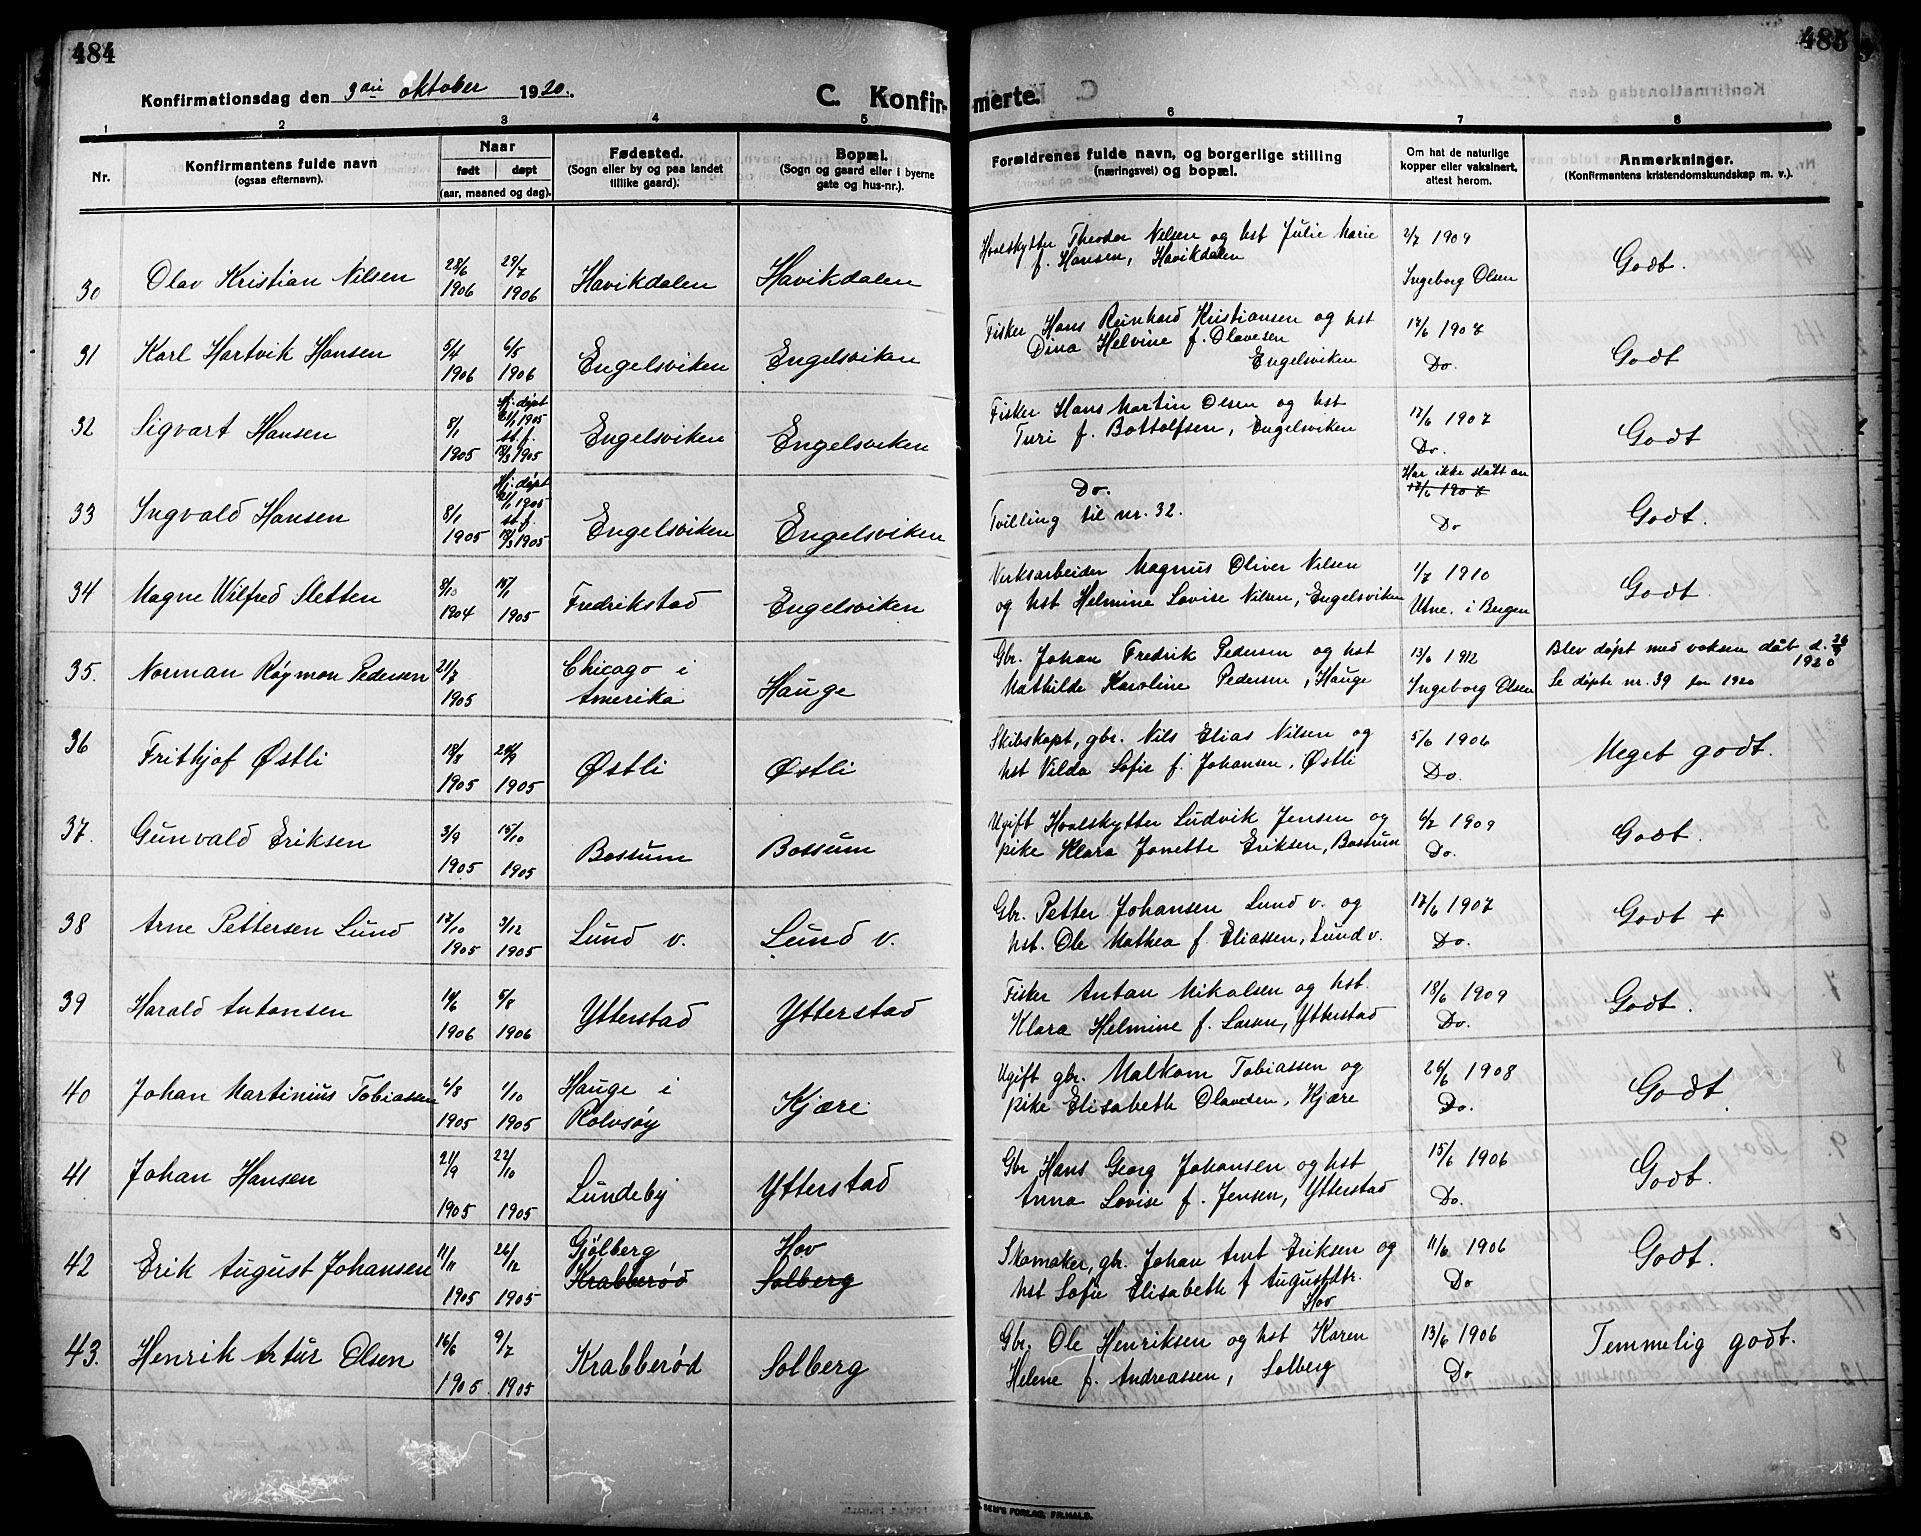 484
485
Konfirmationsdag den 3die oktober 1920.
C. Konfir-merte.
1 2 3 4 5 6 7 8
Nr.
Konfirmantens fulde navn
(ogsaa efternavn).
Naar
født døpt
(aar, maaned og dag).
Fødested.
(Sogn eller by og paa landet
tillike gaard).
Bopæl.
(Sogn og gaard eller i byerne
gate og hus-nr.).
Forældrenes fulde navn, og borgerlige stilling
(næringsvei) og bopæl.
Om hat de naturlige
kopper eller vaksinert,
attest herom.
Anmerkninger.
(Konfirmantens kristendomskundskap m. v.).
30 Olav Kristian Nilsen 28/6 1906 29/7 1906 Havikdalen Havikdalen
Hvalskytter Theodor Nilsen og hst Julie Marie
f. Hansen, Havikdalen
2/7 1909
Ingeborg Olsen
Godt.
31 Karl Hartvik Hansen 5/4 1906 6/5 1906 Engelsviken Engelsviken
Fisker Hans Reinhard Kristiansen og hst
Dina Helvine f. Olavesen
Engelsviken
17/6 1907
Do.
Godt
32 Sigvart Hansen 8/1 1905
Hj. døpt
21/1 1905
st. f.
12/3 1905
Engelsviken Engelsviken
Fisker Hans Martin Olsen og hst
Turi f. Bottolfsen, Engelsviken
17/6 1907
Do.
Godt
33 Ingvald Hansen 8/1 1905
Hj. døpt
21/1 1905
st. f.
12/3 1905
Engelsviken Engelsviken
Do.
Tvilling til nr. 32.
Har ikke slått an
17/6 1907
Do
Godt.
34 Magne Wilfred Sletten 8/10 1904 15/1 1905 Fredrikstad Engelsviken
Verksarbeider Magnus Oliver Nilsen
og hst Helmine Lovise Nilsen, Engelsviken
1/7 1910
Utne. i Bergen
Godt.
35. Norman Røymon Pedersen 21/7 1905
Chicago i
Amerika
Hauge
Gbr. Johan Fredrik Pedersen og hst
Mathilde Karoline Pedersen, Hauge
13/6 1912
Ingeborg Olsen
Blev døpt med voksen dåb d.
1920
Se døpte nr. 39 for 1920
36 Frithjof Østli 18/8 1905 24/9 1905 Østli Østli
Skibskapt, gbr. Nils Elias Nilsen og
hst Vilda Sofie f. Johansen, Østli
5/6 1906
Do.
Meget godt.
37. Gunvald Eriksen 3/9 1905 15/10 1905 Bossum Bossum
Ugift Hvalskytter Ludvik Jensen og
pike Klara Jonette Eriksen, Bossum
6/7 1909
Do.
Godt.
38 Arne Pettersen Lund 17/10 1905 3/12 1905 Lund v. Lund v.
Gbr. Petter Johansen Lund v. og
hst. Ole Mathea f. Eliassen, Lund v.
17/6 1907
Do.
Godt +
39 Harald Antonsen 14/6 1906 5/8 1906 Ytterstad Ytterstad
Fisker Anton Nikolsen og hst.
Klara Helmine f. Larsen, Ytterstad
18/6 1909
Do.
Godt.
40 Johan Martinius Tobiassen 6/8 1905 1/10 1905
Hauge i
Rolvsøy
Kjære
Ugift gbr. Malkom Tobiassen og
pike Elisabeth Olavesen, Kjære
26/6 1908
Do.
Godt.
41 Johan Hansen 21/9 1905 22/10 1905 Lundeby Ytterstad
Gbr Hans Georg Johansen og hst
Anna Lovise f. Jensen, Ytterstad
15/6 1906
Do.
Godt.
42 Erik August Johansen 11/11 1905 26/12 1905
Gjølberg
Krabberød
Hov
Solberg
Skomaker, gbr. Johan Arnt Eriksen og
hst Sofie Elisabeth f Augustdtr.
Hov
11/6 1906
Do
Godt.
43. Henrik Artur Olsen 16/6 1905. 9/7 1905 Krabberød Solberg
Gbr. Ole Henriksen og hst Karen
Helene f. Andreassen, Solberg
13/6 1906
Do
Temmelig godt.
SEM'S FORLAG, FR.HALD.